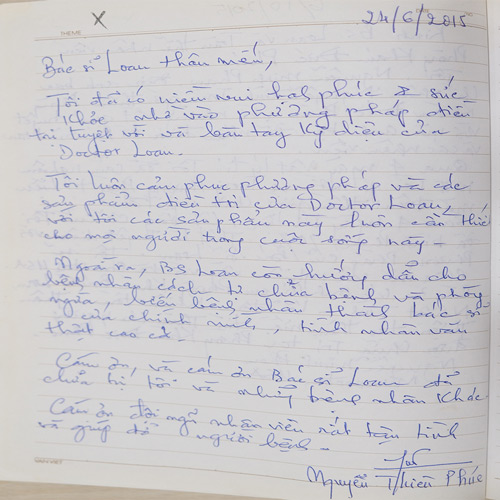 THEME
X
24/6/2015
Bác sĩ Loan thân mến,
Tôi đã có niềm vui hạnh phúc & sức
khỏe nhờ vào phương pháp điều
trị tuyệt vời và bàn tay kỳ diệu của
Doctor Loan.
Tôi luôn cảm phục phương pháp và các
sản phẩm điều trị của Doctor Loan,
với tôi các sản phẩm này luôn cần thiết
cho mọi người trong cuộc sống này -
Ngoài ra, BS Loan còn hướng dẫn cho
bệnh nhân cách tự chữa bệnh và phòng
ngừa, biến bệnh nhân thành bác sĩ
của chính mình, tính nhân văn
thật cao cả -
Cám ơn, và cám ơn Bác sĩ Loan đã
chữa trị tôi và những bệnh nhân khác
Cám ơn đội ngũ nhân viên rất tận tình
và giúp đỡ người bệnh -
Nguyễn Thiên Phúc